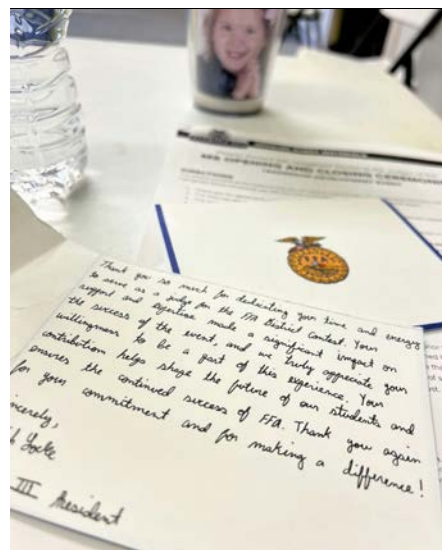 MS OPENING AND CLOSING CEREMON
Thank you so much for dedicating your time and energy
to serve as a judge for the FFA District Contest. Your
support and expertise made a significant impact on
the success of the event, and we truly appreciate your
willingness to be a part of this experience. Your
contribution helps shape the future of our students and
ensures the continued success of FFA. Thank you again
for your commitment and for making a difference!
incerely,
Locke
III President